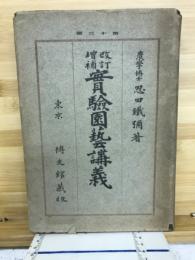 第十三版
農學博士 恩田鐵彌著
改訂增補
實驗園藝講義
東京 博文館藏版